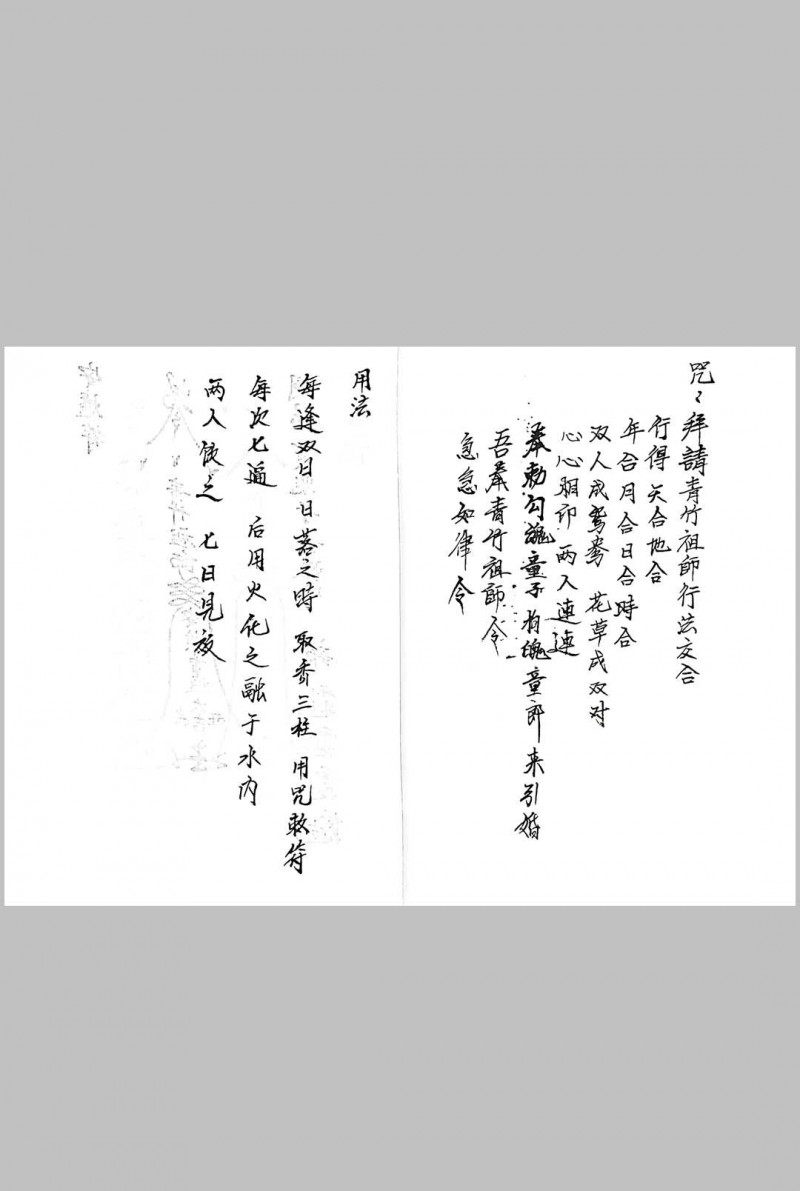 咒：拜請青竹祖師行法交合
行得天合地合
年合月合日合時合
双人成鴛鴦 花草成双对
心心相印 两人連連
奉勅勾魂童子 拘魂童郎来引婚
吾奉青竹祖師令
急急如律令
用法
每逢双日 日落之時 取香三柱 用咒敕符
每次七遍 后用火化之融于水内
两人飲之 七日見效